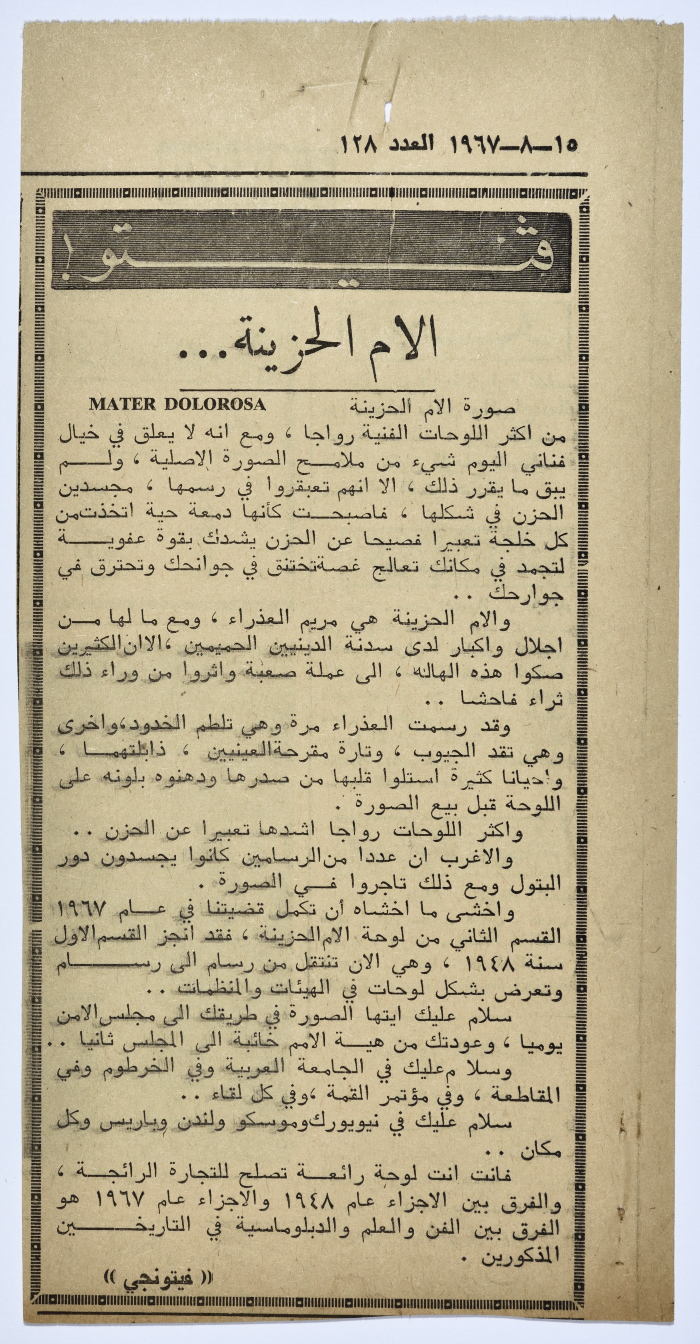 ١٥ــ٨ــ١٩٦٧ العدد ١٢٨
ڤنيتو !
الام الحزينة...
صورة الام الحزينة MATER DOLOROSA
من اكثر اللوحات الفنية رواجا ، ومع انه لا يعلق في خيال
فناني اليوم شيء من ملامح الصورة الاصلية ، ولم
يبق ما يقرر ذلك ، الا انهم تعبقروا في رسمها ، مجسدين
الحزن في شكلها ، فاصبحت كأنها دمعة حية اتخذت من
كل خلجة تعبيرا فصيحا عن الحزن يشدك بقوة عفوية
لتجمد في مكانك تعالج غصة تختنق في جوانحك وتحترق في
جوارحك ..
والام الحزينة هي مريم العذراء ، ومع ما لها من
اجلال واكبار لدى سدنة الدينيين الحميمين ، الا ان الكثيرين
صكوا هذه الهاله ، الى عملة صعبة واثروا من وراء ذلك
ثراء فاحشا ..
وقد رسمت العذراء مرة وهي تلطم الخدود، واخرى
وهي تقد الجيوب ، وتارة مقرحة العينيين ، ذابلتهما ،
واحيانا كثيرة استلوا قلبها من صدرها ودهنوه بلونه على
اللوحة قبل بيع الصورة .
واكثر اللوحات رواجا اشدها تعبيرا عن الحزن ..
والاغرب ان عددا من الرسامين كانوا يجسدون دور
البتول ومع ذلك تاجروا في الصورة .
واخشى ما اخشاه أن تكمل قضيتنا في عام ١٩٦٧
القسم الثاني من لوحة الام الحزينة ، فقد انجز القسم الاول
سنة ١٩٤٨ ، وهي الان تنتقل من رسام الى رسام
وتعرض بشكل لوحات في الهيئات والمنظمات ..
سلام عليك ايتها الصورة في طريقك الى مجلس الامن
يوميا ، وعودتك من هيئة الامم خائبة الى المجلس ثانيا ..
وسلا م عليك في الجامعة العربية وفي الخرطوم وفي
المقاطعة ، وفي مؤتمر القمة ، وفي كل لقاء ..
سلام عليك في نيويورك وموسكو ولندن وباريس وكل
مكان ..
فانت انت لوحة رائعة تصلح للتجارة الرائجة ،
والفرق بين الاجزاء عام ١٩٤٨ والاجزاء عام ١٩٦٧ هو
الفرق بين الفن والعلم والدبلوماسية في التاريخين
المذكورين .
(( فيتونجي ))